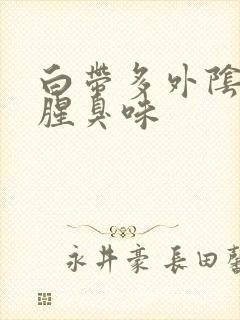 白帶多外陰
腥臭味
永井豪 長田馨